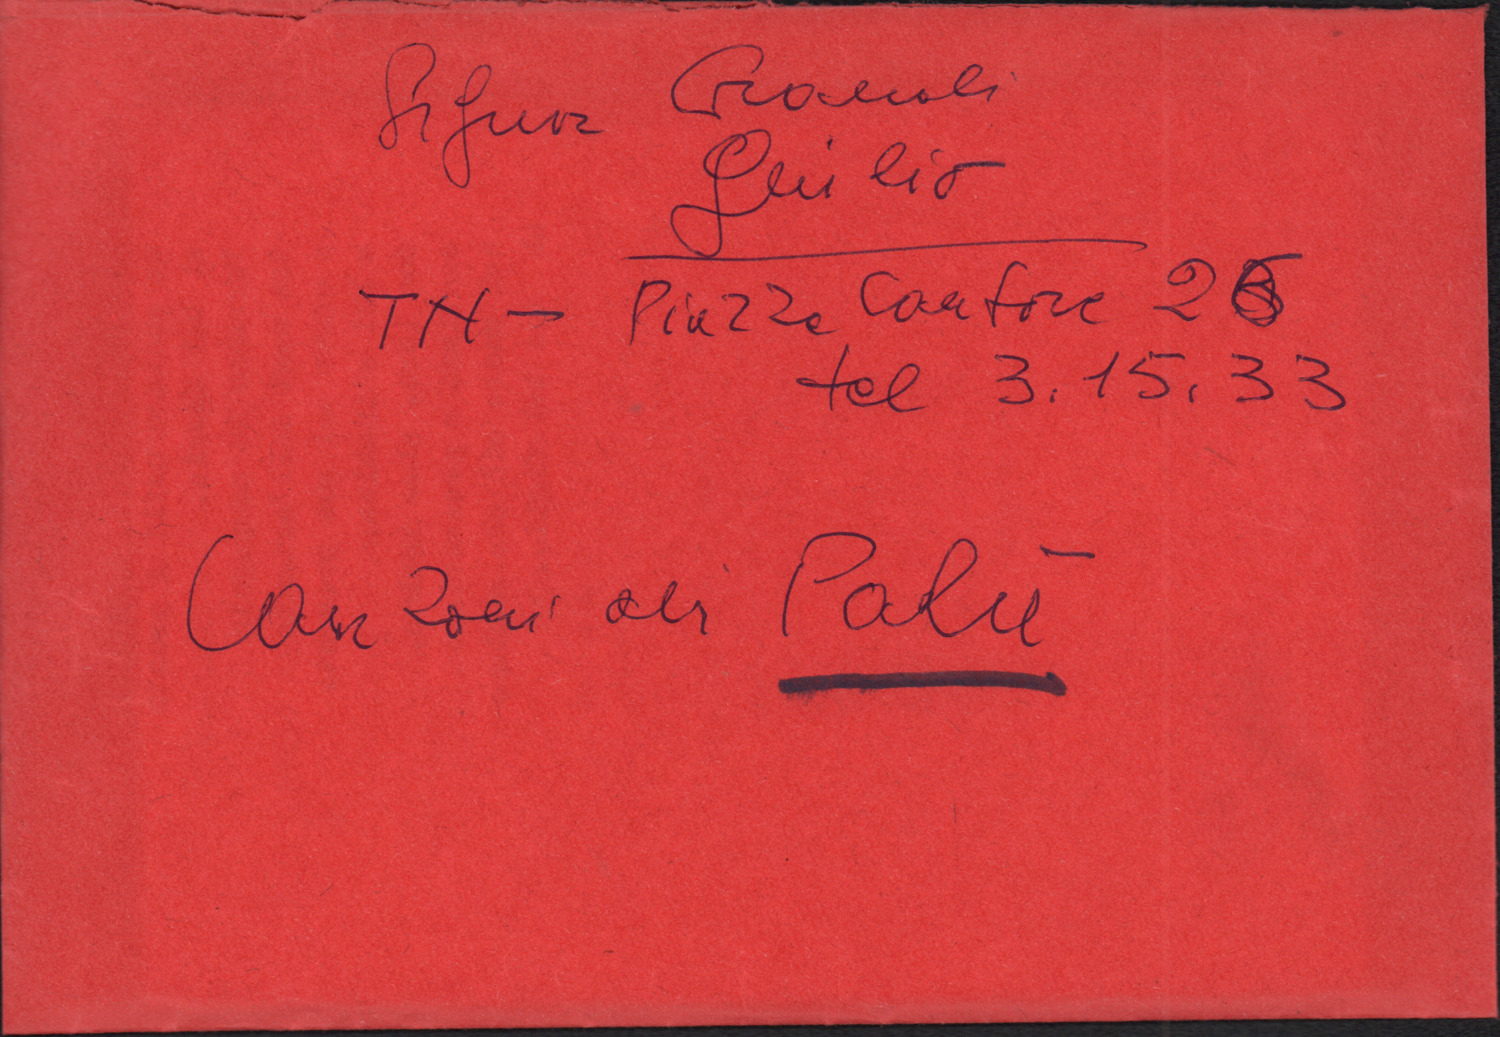 Signor Gramoli
Giulio
TN - Piazza Cantore 
tel 3.15.33
Canzoni di Palù